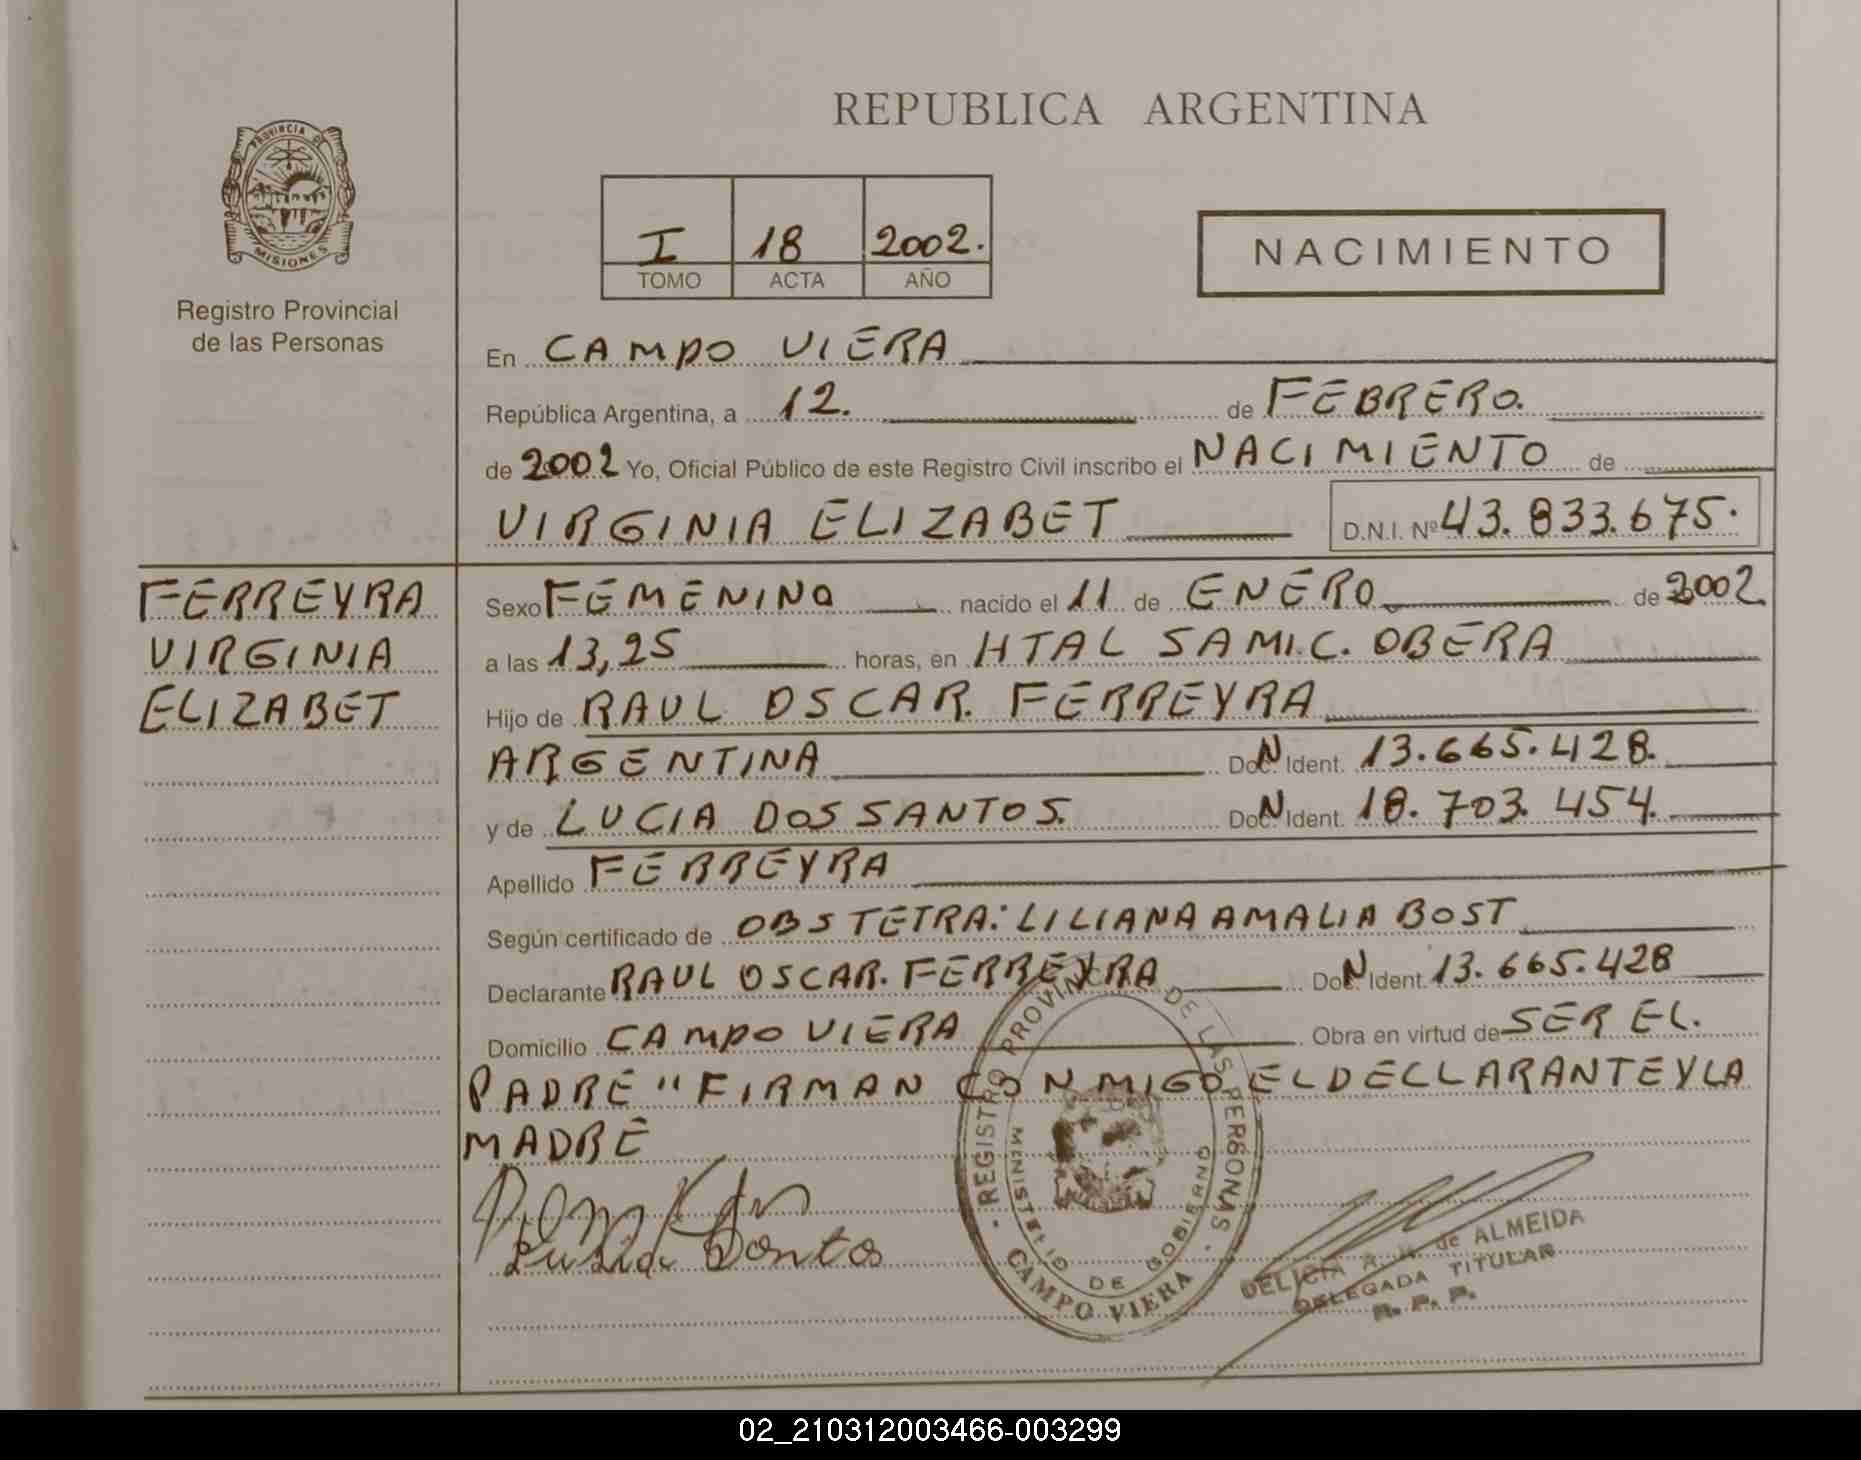 REPUBLICA ARGENTINA
PROVINCIA DE
MISIONES
Registro Provincial
de las Personas
I 18 2002.
TOMO ACTA AÑO
NACIMIENTO
En CAMPO VIERA
República Argentina, a 12. de FEBRERO.
de 2002 Yo, Oficial Público de este Registro Civil inscribo el NACIMIENTO de
VIRGINIA ELIZABET D.N.I. Nº 43.833.675.
FERREYRA
VIRGINIA
ELIZABET
Sexo FEMENINO nacido el 11 de ENERO de 2002
a las 13,25 horas, en HTAL SAMI.C. OBERA
Hijo de RAUL OSCAR. FERREYRA
ARGENTINA Doc. N Ident. 13.665.428.
y de LUCIA DOS SANTOS. Doc. N Ident. 18.703.454.
Apellido FERREYRA
Según certificado de OBSTETRA: LILIANA AMALIA BOST
Declarante RAUL OSCAR. FERREYRA Doc. N Ident. 13.665.428
Domicilio CAMPO VIERA Obra en virtud de SER EL.
PADRE " FIRMAN CONMIGO EL DECLLARANTE Y LA
MADRE
REGISTRO PROVINCIAL DE LAS PERSONAS
MINISTERIO DE GOBIERNO
CAMPO VIERA
DELICIA de ALMEIDA
DELEGADA TITULAR
R. P. P.
02_210312003466-003299